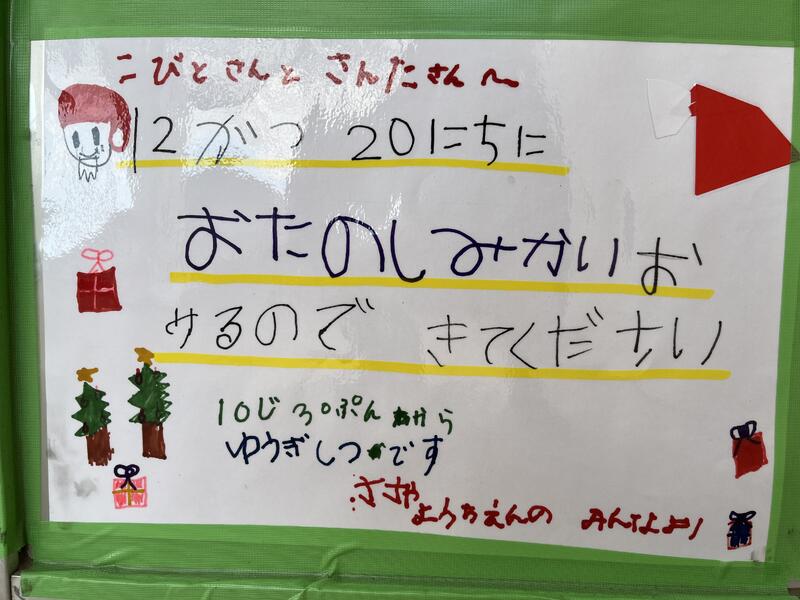 こびとさんと さんたさんへ
12がつ 20にちに
おたのしみかいお
やるので きてください
10じ 30ぷん から
ゆうぎしつ です
ささや
ようちえんの みんなより